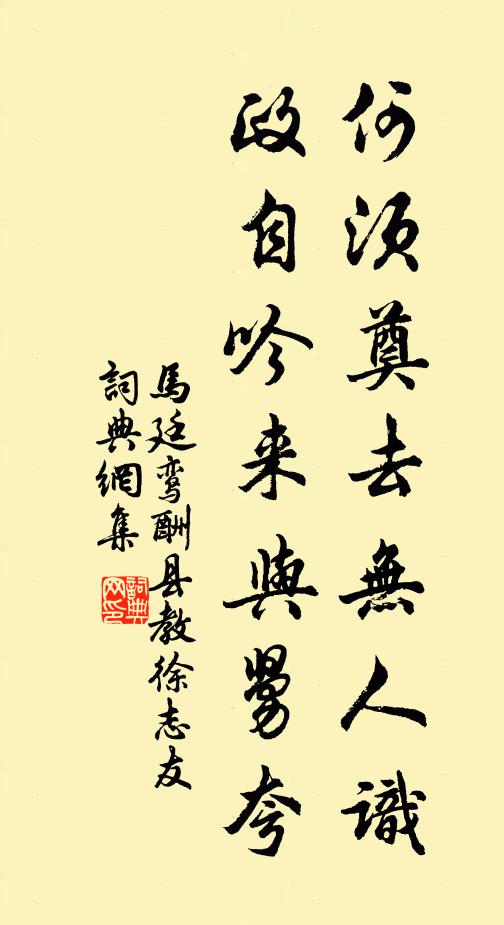 何須奠去無人識
政自吟来與舅夸
馬廷鸾酬县教徐志友
詞典網集
詞典网印